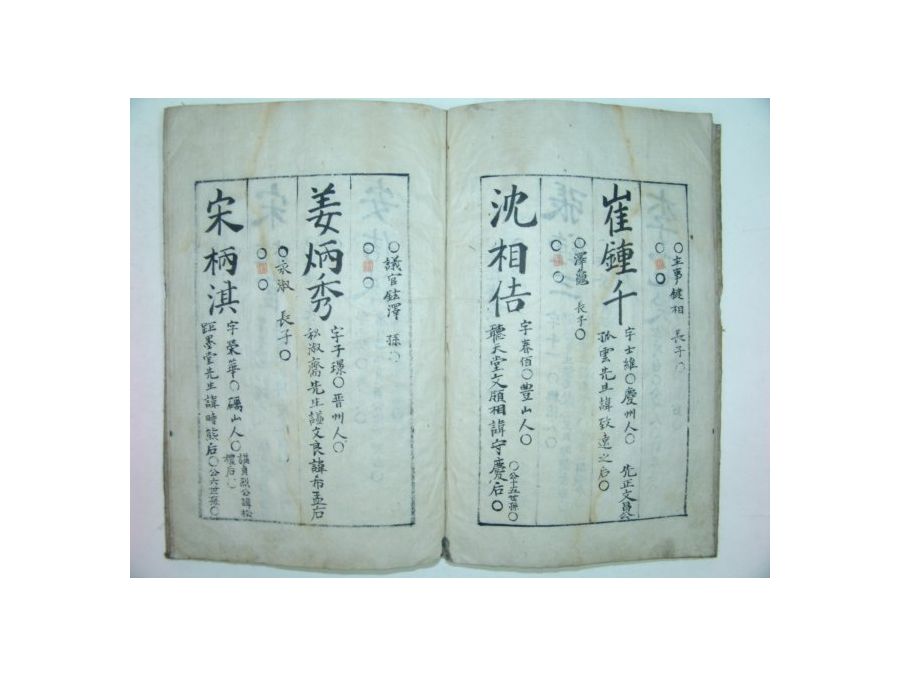 ○主事鍵相 長子○
崔鍾千 字士維○慶州人○ 先正文昌公
孤雲先生諱致遠之后○
○澤龜 長子○
沈相佶 字春佰○豊山人○
聽天堂文 相諱守慶后○ ○公十五世孫○
○議官鉉澤 孫○
姜炳秀 字子璟○晋州人○
私淑齋先生謚文良諱希孟后
○永淑 長子○
宋柄淇 字榮華○礪山人○
先生諱時 后○公六世孫○